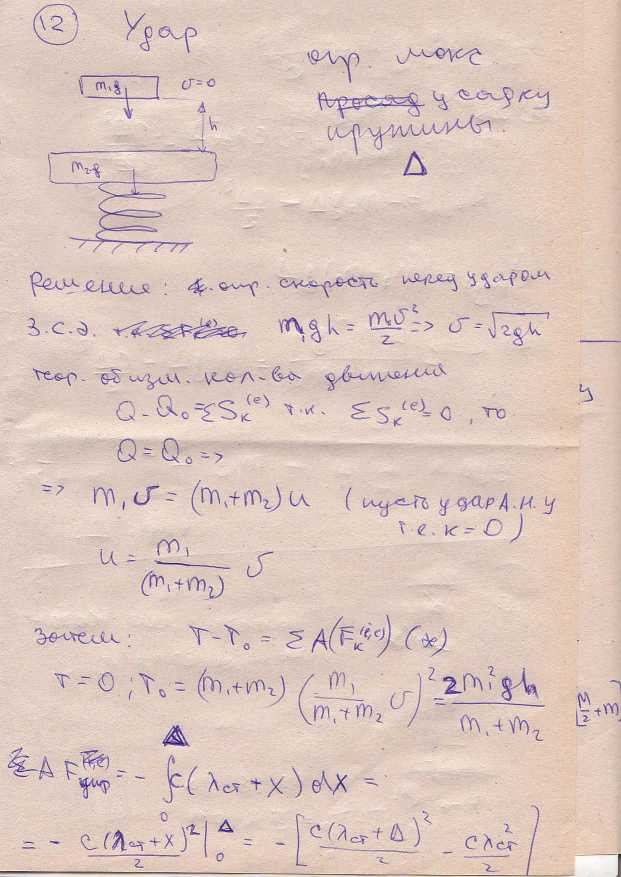 12 Удар
m₁g v=0
h
m₂g
опр. макс.
усадку
пружины.
Δ
Решение: опр. скорость перед ударом
З.С.Э. m₁gh = m₁v²/2 => v = √2gh
теор. об изм. кол-ва движения
Q - Q₀ = ΣSₖ⁽ᵉ⁾ т.к. ΣSₖ⁽ᵉ⁾ = 0, то
Q = Q₀ =>
=> m₁v = (m₁+m₂)u (пусть удар А.Н.У
т.е. к = 0)
u = m₁/(m₁+m₂) v
Затем: T - T₀ = ΣA(Fₖ⁽ⁱ,ᵉ⁾) (*)
T = 0; T₀ = (m₁+m₂) (m₁/(m₁+m₂) v)² = 2m₁²gh/(m₁+m₂)
A Fупр = - ∫₀^Δ c(λст + x) dx =
= - c(λст + x)²/2 |₀^Δ = - [c(λст + Δ)²/2 - cλст²/2]